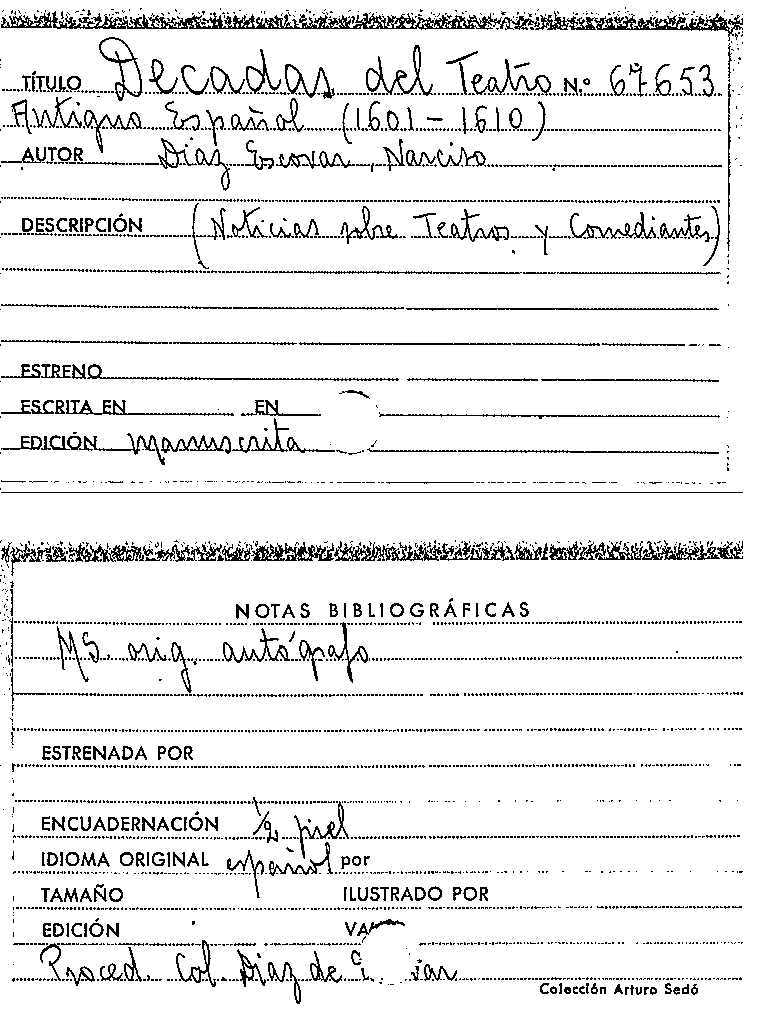 TÍTULO Decadas del Teatro N.º 67653
Antiguo Español (1601-1610)
AUTOR Diaz Escovar, Narciso
DESCRIPCIÓN (Noticias sobre Teatros y Comediantes)
ESTRENO
ESCRITA EN EN
EDICIÓN manuscrita
NOTAS BIBLIOGRÁFICAS
MS. orig. autógrafo
ESTRENADA POR
ENCUADERNACIÓN 1/2 piel
IDIOMA ORIGINAL español por
TAMAÑO ILUSTRADO POR
EDICIÓN
Proced. Col. Diaz de
Colección Arturo Sedó